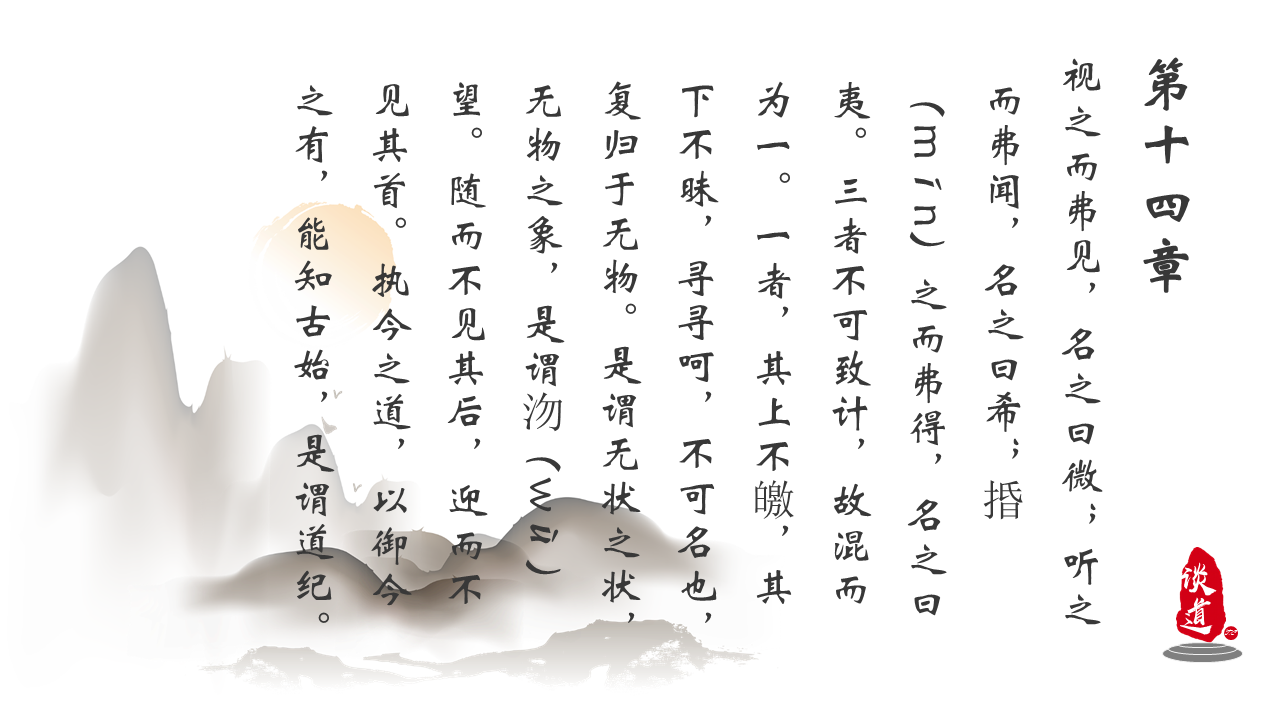 第十四章
视之而弗见，名之曰微；听之
而弗闻，名之曰希；捪
（mín）之而弗得，名之曰
夷。三者不可致计，故混而
为一。一者，其上不皦，其
下不昧，寻寻呵，不可名也，
复归于无物。是谓无状之状，
无物之象，是谓沕（wù）
望。随而不见其后，迎而不
见其首。执今之道，以御今
之有，能知古始，是谓道纪。
谈道